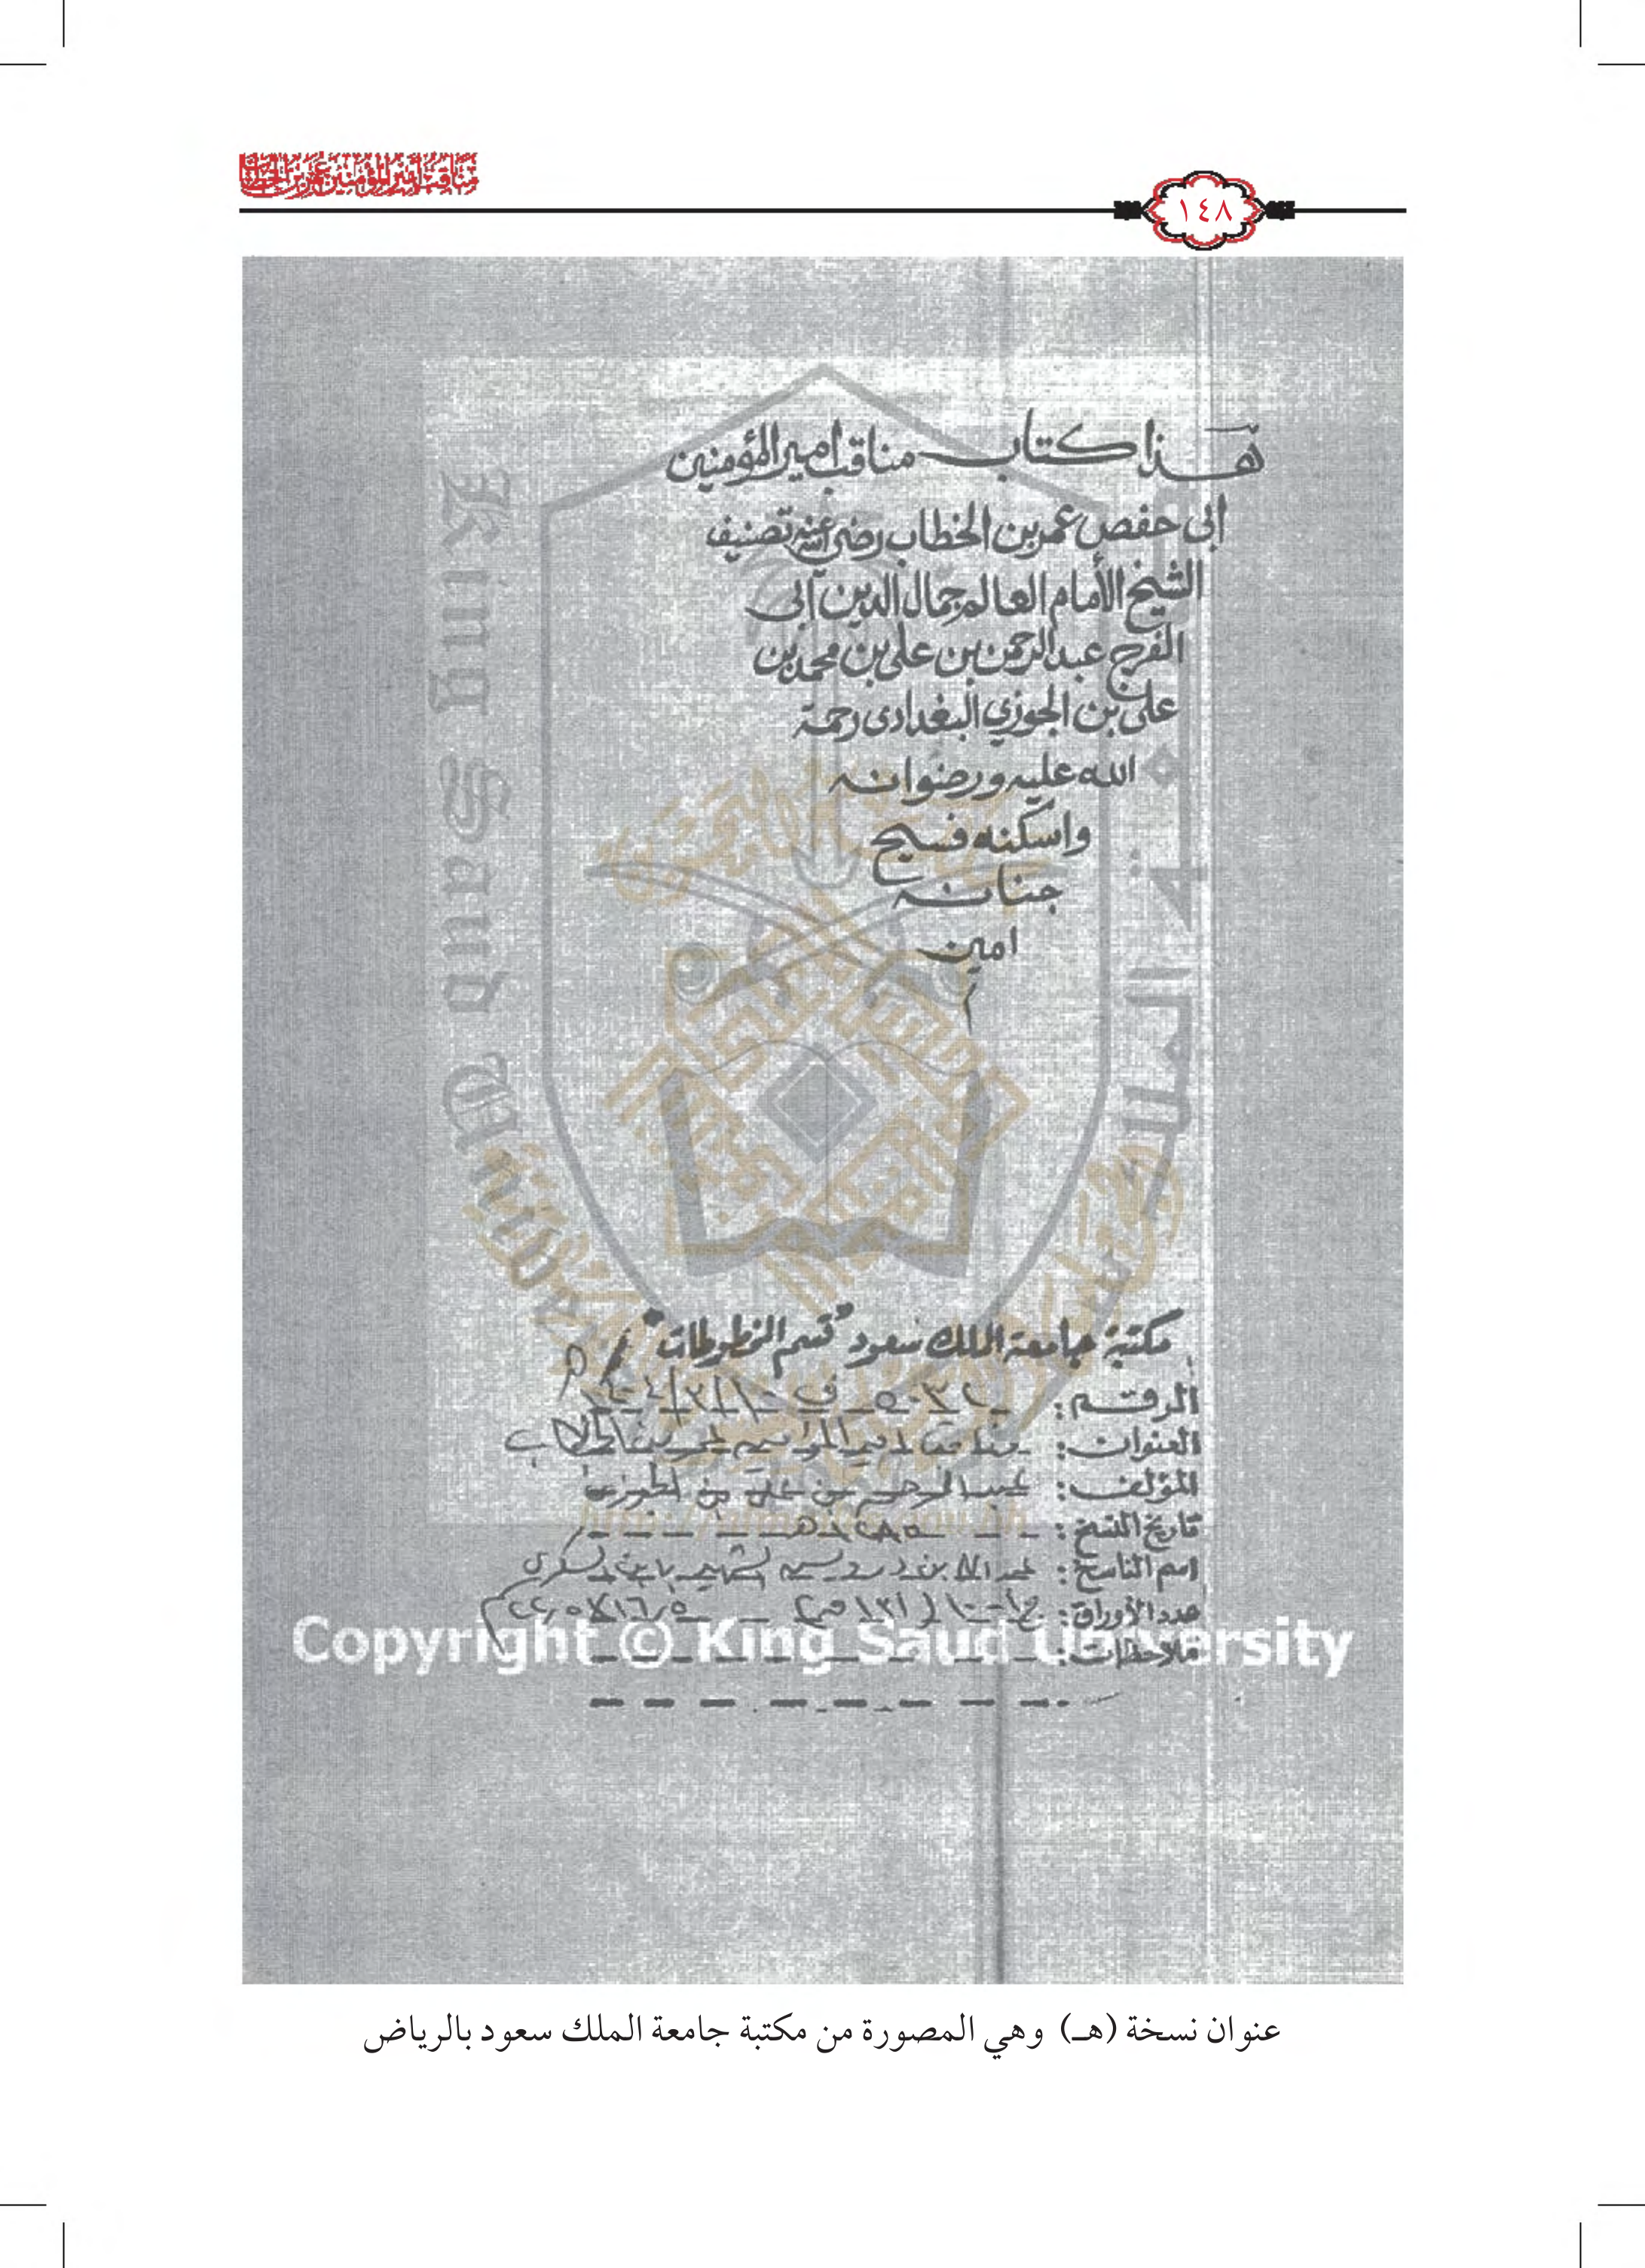 مناقب أمير المؤمنين عمر بن الخطاب
١٤٨
هذا كتاب مناقب امير المؤمنين
ابى حفص عمر بن الخطاب رضى الله عنه تصنيف
الشيخ الأمام العالم جمال الدين ابى
الفرج عبد الرحمن بن على بن محمد بن
على بن الجوزي البغدادى رحمة
الله عليه ورضوانه
واسكنه فسيح
جنانه
امين
King Saud Univ
مكتبة جامعة الملك سعود "قسم المخطوطات"
الرقم:
العنوان: مناقب امير المؤمنين عمر بن الخطاب
المؤلف: عبد الرحمن بن علي بن الجوزي
تاريخ النسخ: ١٢٨٥هـ
اسم الناسخ:
عدد الأوراق:
ملاحظات:
Copyright © King Saud University
عنوان نسخة (هـ) وهي المصورة من مكتبة جامعة الملك سعود بالرياض